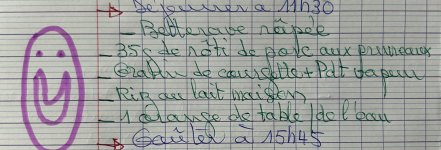 Déjeuner à 11h30
- Betterave râpée
- 35g de rôti de porc aux pruneaux
- Gratin de courgette + Pdt vapeur
- Riz au lait maison
- 1 orange de table / de l'eau
Goûter à 15h45